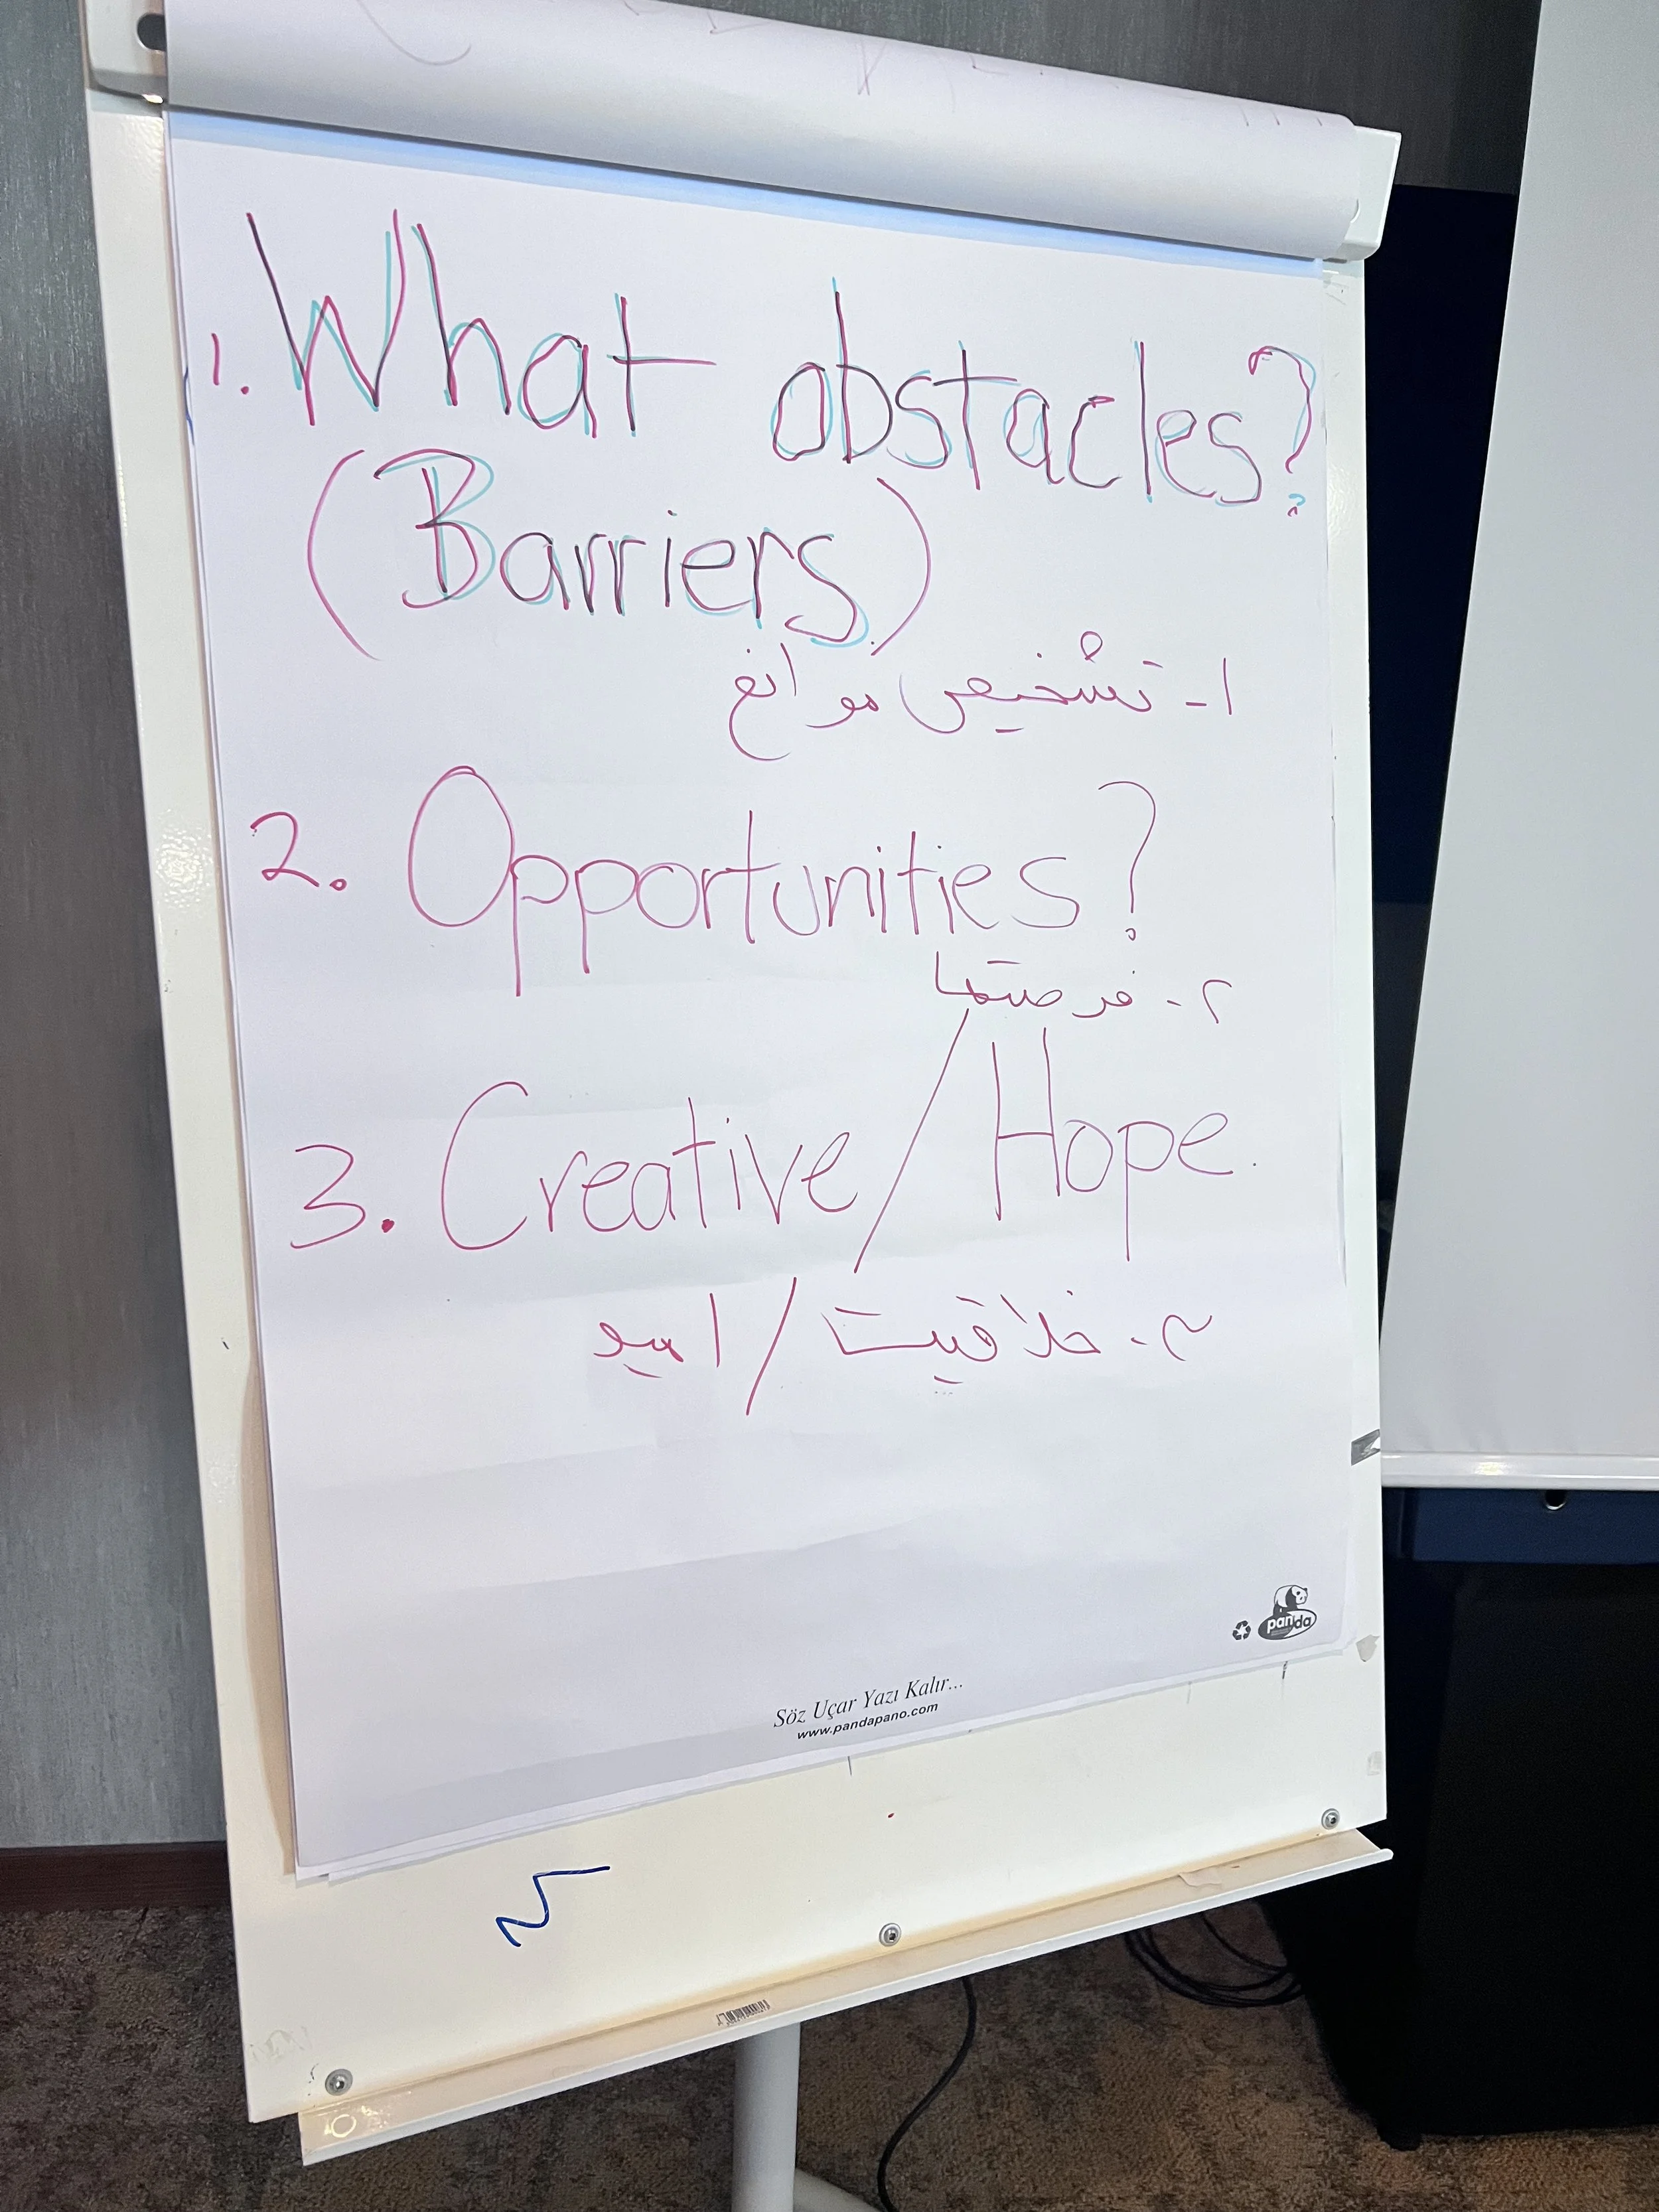 1. What obstacles?
(Barriers)
۱- تشخیص موانع
2. Opportunities?
۲- فرصتها
3. Creative/Hope.
۳- خلاقیت/امید
panda
Söz Uçar Yazı Kalır...
www.pandapano.com